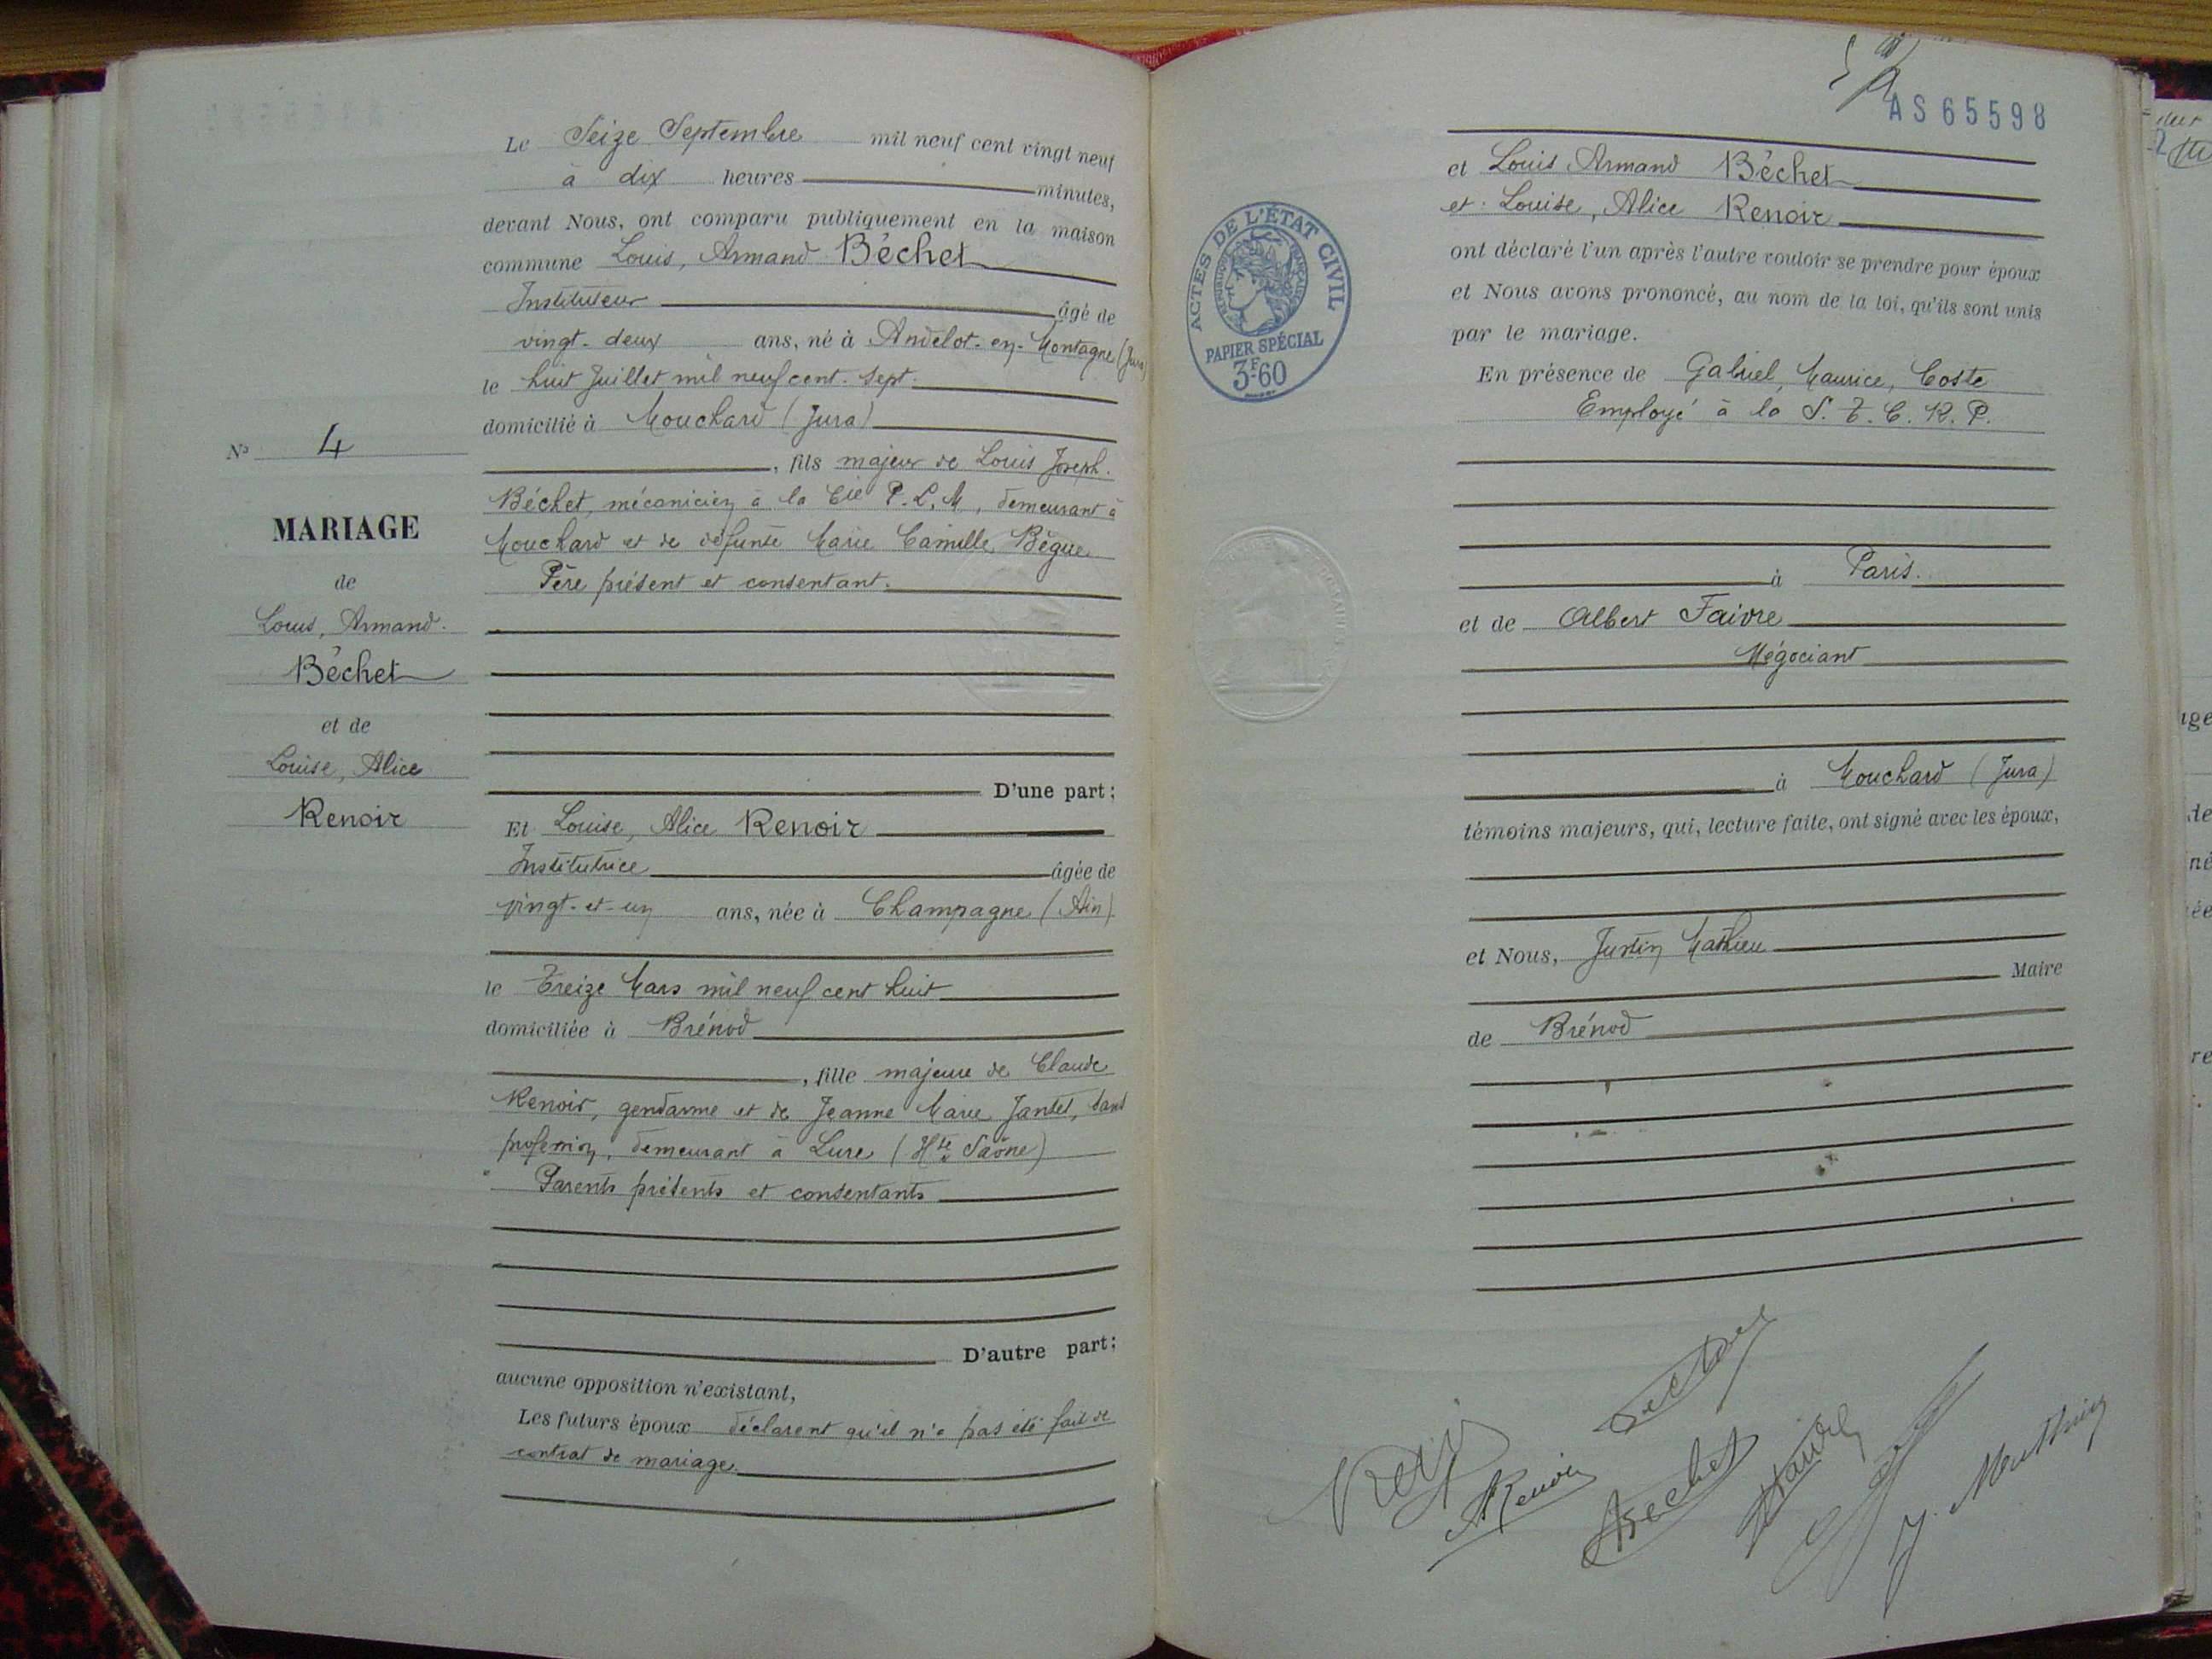 Le Seize Septembre mil neuf cent vingt neuf
à dix heures minutes,
devant Nous, ont comparu publiquement en la maison
commune Louis, Armand Béchet
Instituteur âgé de
vingt-deux ans, né à Andelot-en-Montagne (Jura)
le huit Juillet mil neuf cent-sept.
domicilié à Mouchard (Jura)
, fils majeur de Louis Joseph.
Béchet, mécanicien à la Cie P.L.M, demeurant à
Mouchard et de défunte Marie Camille Bègue
Père présent et consentant.
D'une part;
Et Louise, Alice Renoir
Institutrice âgée de
vingt-et-un ans, née à Champagne (Ain)
le Treize Mars mil neuf cent huit
domiciliée à Brénod
, fille majeure de Claude
Renoir, gendarme et de Jeanne Marie Jantet, sans
profession, demeurant à Lure (Hte Saône)
Parents présents et consentants
D'autre part;
aucune opposition n'existant,
Les futurs époux déclarent qu'il n'a pas été fait de
contrat de mariage.
No 4
MARIAGE
de
Louis, Armand.
Béchet
et de
Louise, Alice
Renoir
AS65598
et Louis Armand Béchet
et Louise, Alice Renoir
ont déclaré l'un après l'autre vouloir se prendre pour époux
et Nous avons prononcé, au nom de la loi, qu'ils sont unis
par le mariage.
En présence de Gabriel, Maurice, Coste
Employé à la S.T.C.R.P.
à Paris.
et de Albert Faivre
Négociant
à Mouchard (Jura)
témoins majeurs, qui, lecture faite, ont signé avec les époux,
et Nous, Justin Mathieu
Maire
de Brénod
ACTES DE L'ÉTAT CIVIL
RÉPUBLIQUE FRANÇAISE
PAPIER SPÉCIAL
3F60
A Renoir
Bechet
J. Matthieu